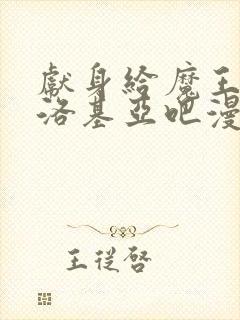 獻身給魔王
洛基亞吧漫
王從啓